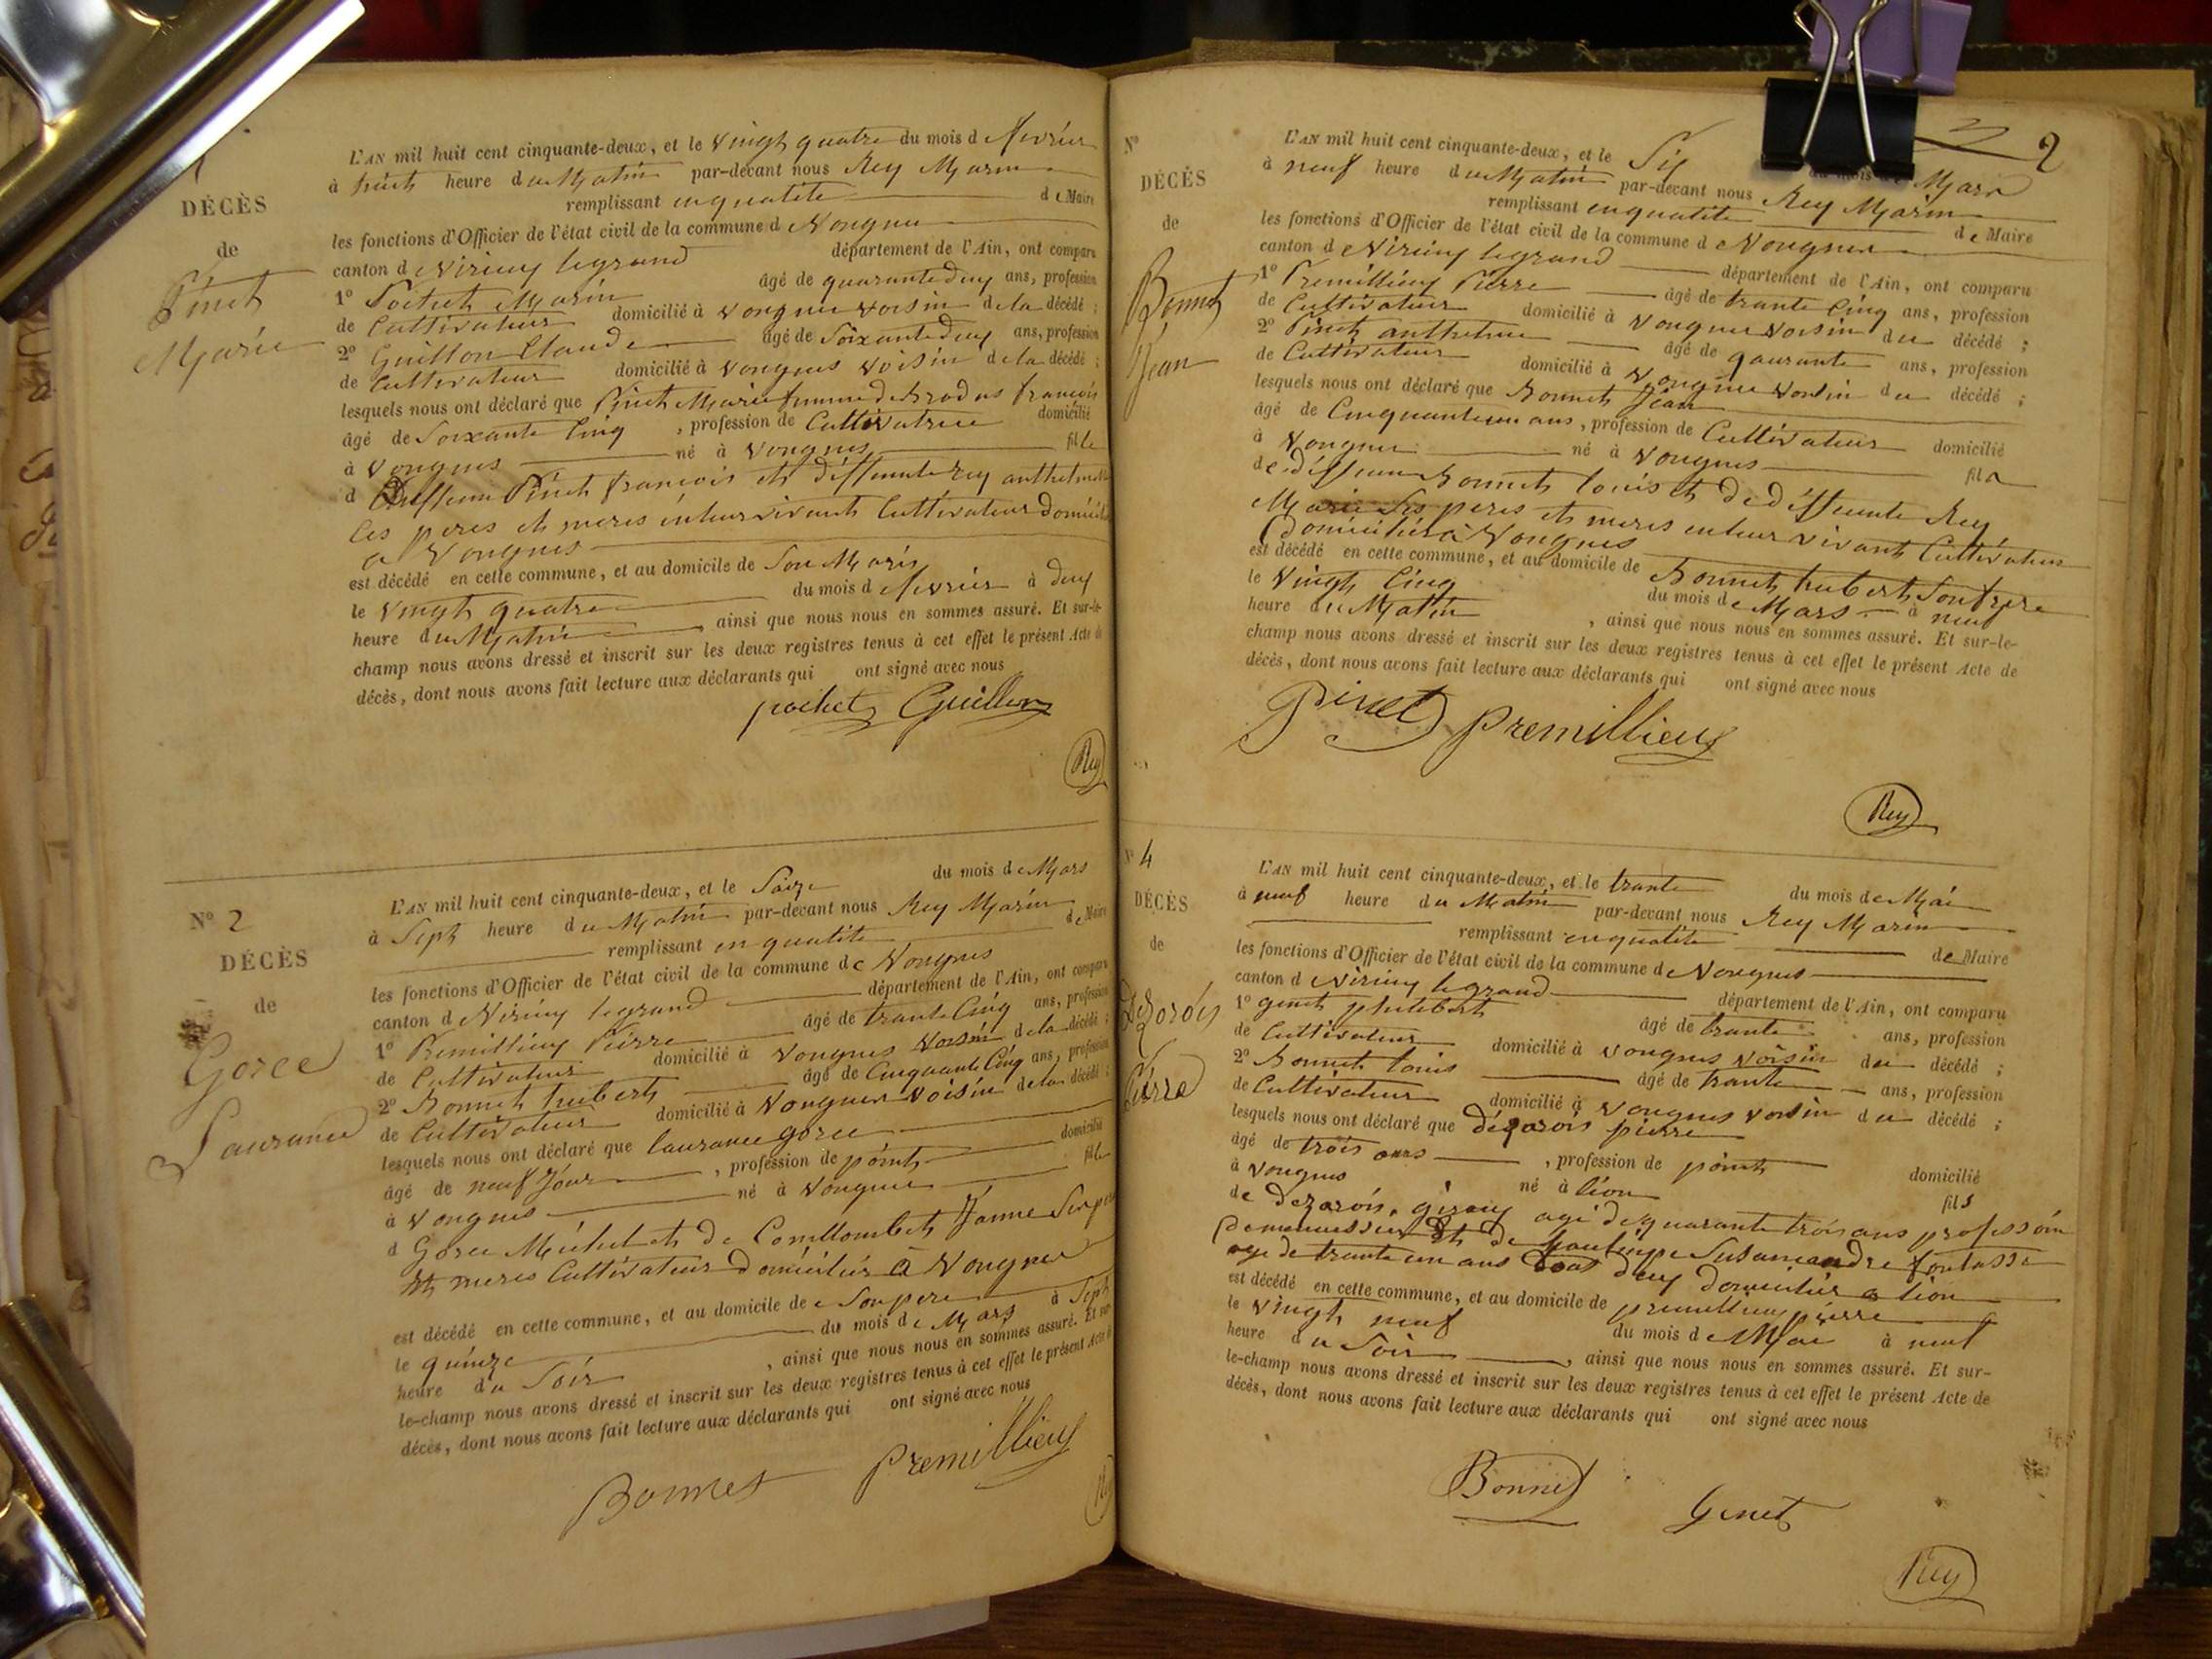 DÉCÈS
de
Pinet
Marie
L'AN mil huit cent cinquante-deux, et le vingt quatre du mois d fevrier
à huit heure du Matin par-devant nous Rey Marin
remplissant enqualité de Maire
les fonctions d'Officier de l'état civil de la commune d Vongnes
canton d Virieuy legrand département de l'Ain, ont comparu
1° Pochet Marin âgé de quarantedeuy ans, profession
de Cultivateur domicilié à vongnes voisin de la décédé ;
2° Guillon Claude âgé de Soixantedeuy ans, profession
de Cultivateur domicilié à vongnes voisin de la décédé ;
lesquels nous ont déclaré que Pinet Marie femme de françois
âgé de Soixante Cinq , profession de Cultivatrice domicilié
à Vongnes né à Vongnes fille
d Deffeun Pinet françois et déffeunte rey anthelmette
les peres et meres enleur vivant Cultivateur domicilié
a Vongnes
est décédé en cette commune, et au domicile de Son Maris
le vingt quatre du mois d fevrier à deuy
heure du Matin , ainsi que nous nous en sommes assuré. Et sur-le-
champ nous avons dressé et inscrit sur les deux registres tenus à cet effet le présent Acte de
décès, dont nous avons fait lecture aux déclarants qui ont signé avec nous
pochet Guillon
Rey
N° 2
DÉCÈS
de
Goree
Laurance
L'AN mil huit cent cinquante-deux, et le Saize du mois de Mars
à Sept heure du Matin par-devant nous Rey Marin
remplissant en qualité de Maire
les fonctions d'Officier de l'état civil de la commune de Vongnes
canton d Virieuy legrand département de l'Ain, ont comparu
1° Premillieuy Pierre âgé de trante Cinq ans, profession
de Cultivateur domicilié à Vongnes Voisin de la décédé ;
2° Bonnet hubert âgé de Cinquante Cinq ans, profession
de Cultivateur domicilié à Vongnes Voisin de la décédé ;
lesquels nous ont déclaré que laurance goree
âgé de neuf Jour , profession de point domicilié
à Vongnes né à Vongnes fille
d Goree Michel et de Comllombet Jeanne
et meres Cultivateur domicilier à Vongnes
est décédé en cette commune, et au domicile de Son pere
le quinze du mois de Mars à Sept
heure du Soir , ainsi que nous nous en sommes assuré. Et sur-
le-champ nous avons dressé et inscrit sur les deux registres tenus à cet effet le présent Acte de
décès, dont nous avons fait lecture aux déclarants qui ont signé avec nous
Bonnet Premillieuy
2
N°
DÉCÈS
de
Bonnet
Jean
L'AN mil huit cent cinquante-deux, et le Siy du mois de Mars
à neuf heure du Matin par-devant nous Rey Marin
remplissant enqualité de Maire
les fonctions d'Officier de l'état civil de la commune d Vongnes
canton d Virieuy legrand département de l'Ain, ont comparu
1° Premillieuy Pierre âgé de trante Cinq ans, profession
de Cultivateur domicilié à Vongnes Voisin du décédé ;
2° Pinet anthelme âgé de qaurante ans, profession
de Cultivateur domicilié à Vongnes Voisin du décédé ;
lesquels nous ont déclaré que Bonnet Jean
âgé de Cinquanteun ans , profession de Cultivateur domicilié
à Vongnes né à Vongnes fils
de déffeun Bonnet louis et de déffeunte Rey
Marie Les peres et meres enleur vivant Cultivateur
domiciliér à Vongnes
est décédé en cette commune, et au domicile de Bonnet hubert Son frere
le Vingt Cinq du mois de Mars à neuf
heure du Matin , ainsi que nous nous en sommes assuré. Et sur-le-
champ nous avons dressé et inscrit sur les deux registres tenus à cet effet le présent Acte de
décès, dont nous avons fait lecture aux déclarants qui ont signé avec nous
Pinet Premillieuy
Rey
N° 4
DÉCÈS
de
Dezorois
Pierre
L'AN mil huit cent cinquante-deux, et le trante du mois de Mai
à neuf heure du Matin par-devant nous Rey Marin
remplissant enqualité de Maire
les fonctions d'Officier de l'état civil de la commune de Vongnes
canton d Virieuy legrand département de l'Ain, ont comparu
1° genet philibert âgé de trante ans, profession
de Cultivateur domicilié à Vongnes voisin du décédé ;
2° Bonnet louis âgé de trante ans, profession
de Cultivateur domicilié à Vongnes voisin du décédé ;
lesquels nous ont déclaré que dézorois pierre
âgé de trois ans , profession de point domicilié
à Vongnes né à lion fils
de dezorois agé de quarante trois ans profession
de menuissier Et de Susanne
age de trante un ans tous deuy domicilier a lion
est décédé en cette commune, et au domicile de premillieuy pierre
le vingt neuf du mois de Mai à neuf
heure du Soir , ainsi que nous nous en sommes assuré. Et sur-
le-champ nous avons dressé et inscrit sur les deux registres tenus à cet effet le présent Acte de
décès, dont nous avons fait lecture aux déclarants qui ont signé avec nous
Bonnet Genet
Rey